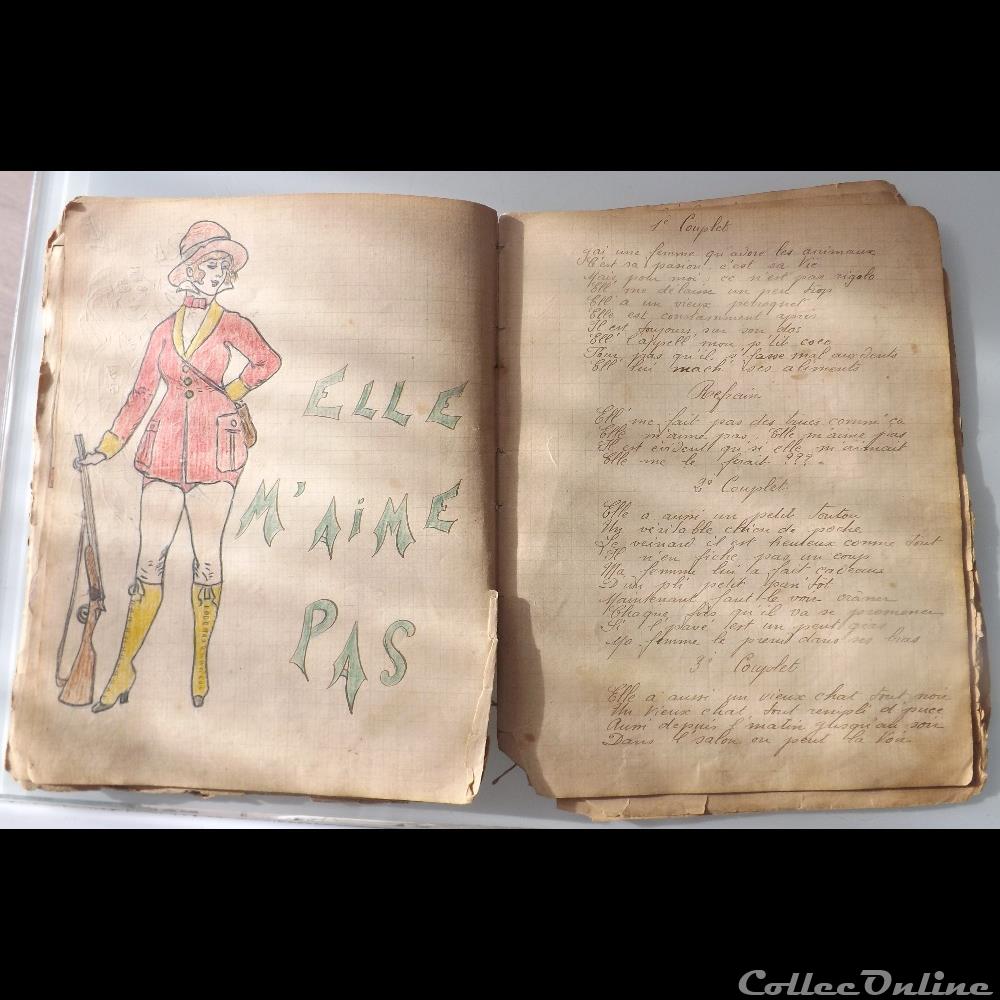 ELLE
M'AIME
PAS
1e Couplet
J'ai une femme qu'adore les animaux
C'est sa passion c'est sa vie
Mais pour moi ce n'est pas rigolo
Ell' me délaisse un peu trop
Ell' a un vieux perroquet
Elle est constamment après
Il est toujours sur son dos
Ell' l'appell' mon p'tit coco
Pour pas qu'il s' fasse mal aux dents
Ell' lui mach' ses aliments
Refrain
Ell' me fait pas des trucs comme ça
Elle m'aime pas, Elle m'aime pas
Il est évident qu'si elle m'aimait
Elle me le ferait ???
2e Couplet
Elle a aussi un petit toutou
Un véritable chien de poche
Le veinard il est heureux comme tout
Il n'en fiche pas un coup
Ma femme lui a fait cadeau
D'un pli petit
Maintenant faut le voir crâner
Chaque fois qu'il va se promener
Si l' pavé est un peu gras
Ma femme le prend dans ses bras
3e Couplet
Elle a aussi un vieux chat tout noir
Un vieux chat tout rempli d' puce
Aussi depuis l' matin jusqu'au soir
Dans l' salon on peut la voir
CollecOnline